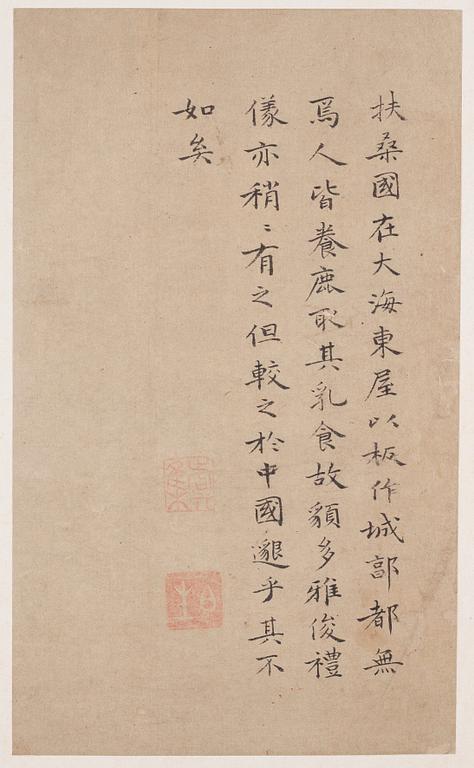 扶桑國在大海東屋以板作城郭都無
焉人皆養鹿取其乳食故貌多雅俊禮
儀亦稍〻有之但較之於中國邈乎其不
如矣